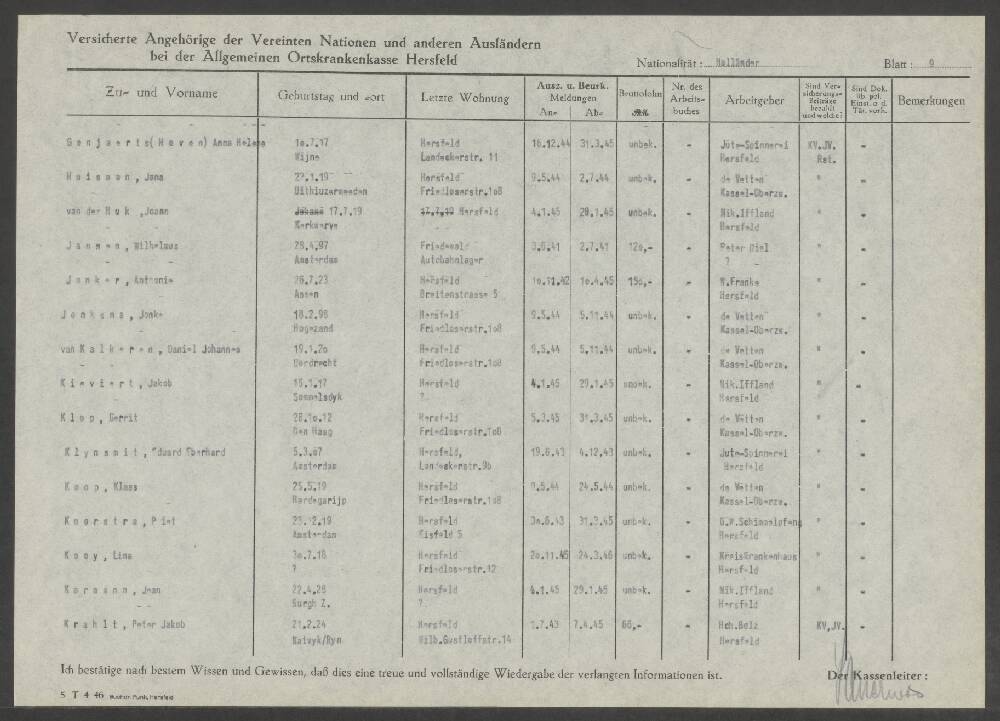 Versicherte Angehörige der Vereinten Nationen und anderen Ausländern
bei der Allgemeinen Ortskrankenkasse Hersfeld
Nationalität: Holländer Blatt: 9
Zu- und Vorname
Geburtstag und -ort
Letzte Wohnung
Ausz. u. Beurk. Meldungen An- Ab-
Bruttolohn
Nr. des Arbeitsbuches
Arbeitgeber
Sind Versicherungs-Beiträge bezahlt und welche?
Sind Dok. üb. pol. Einst. o. d. Tät. vorh.
Bemerkungen
Genjaerts (Hoven) Anna Helene 10.7.17 Hersfeld 16.12.44 31.3.45 unbek. - Jute-Spinnerei KV.JV. -
Wijne Landeckerstr. 11 Hersfeld Rst.
Huisman, Jans 1.19 Hersfeld 9.5.44 2.7.44 unbek. - de Wetten " -
Uithiuzermeeden Friedloserstr.108 Kassel-Oberzw.
van der Hok, Joann Johann 17.7.19 17.7.19 Hersfeld 4.1.45 29.1.45 unbek. - Nik.Iffland " -
Kerkwerve Hersfeld
Jansen, Wilhelmus 28.4.97 Friedewald 3.6.41 2.7.41 120,- - Peter Diel " -
Amsterdam Autobahnlager ?
Jonker, Antonie 26.7.23 Hersfeld 10.11.42 10.4.45 150,- - W.Franke " -
Assen Breitenstrasse 5 Hersfeld
Jonkens, Jonke 18.2.98 Hersfeld 9.5.44 5.11.44 unbek. - de Wetten " -
Hogezand Friedloserstr.108 Kassel-Oberzw.
van Kalkeren, Daniel Johannes 19.1.20 Hersfeld 9.5.44 5.11.44 unbek. - de Wetten " -
Dordrecht Friedloserstr.108 Kassel-Oberzw.
Kieviert, Jakob 15.1.17 Hersfeld 4.1.45 29.1.45 unbek. - Nik.Iffland " -
Sommelsdyk ? Hersfeld
Klop, Gerrit 28.10.12 Hersfeld 5.3.45 31.3.45 unbek. - de Wetten " -
Den Haag Friedloserstr.108 Kassel-Oberzw.
Klynsmit, Eduard Eberhard 5.3.67 Hersfeld, 19.6.43 4.12.43 unbek. - Jute-Spinnerei " -
Amsterdam Landeckerstr.9b Hersfeld
Koop, Klaas 25.5.19 Hersfeld 9.5.44 24.5.44 unbek. - de Wetten " -
Hardegarijp Friedloserstr.108 Kassel-Oberzw.
Koorstra, Piet 23.12.19 Hersfeld 30.6.43 31.3.45 unbek. - G.W.Schimmelpfeng " -
Amsterdam Kisfeld 5 Hersfeld
Kooy, Lina 30.7.18 Hersfeld 20.11.45 24.3.46 unbek. - Kreiskrankenhaus " -
? Friedloserstr.12 Hersfeld
Kormann, Jean 22.4.26 Hersfeld 4.1.45 29.1.45 unbek. - Nik.Iffland " -
Burgh Z. ? Hersfeld
Krahlt, Peter Jakob 21.2.24 Hersfeld 1.7.43 7.4.45 66,- - Hch.Belz KV,JV. -
Katvyk/Ryn Wilh.Gustloffstr.14 Hersfeld
Ich bestätige nach bestem Wissen und Gewissen, daß dies eine treue und vollständige Wiedergabe der verlangten Informationen ist. Der Kassenleiter:
5 T 4 46 Buchdr. Funk, Hersfeld